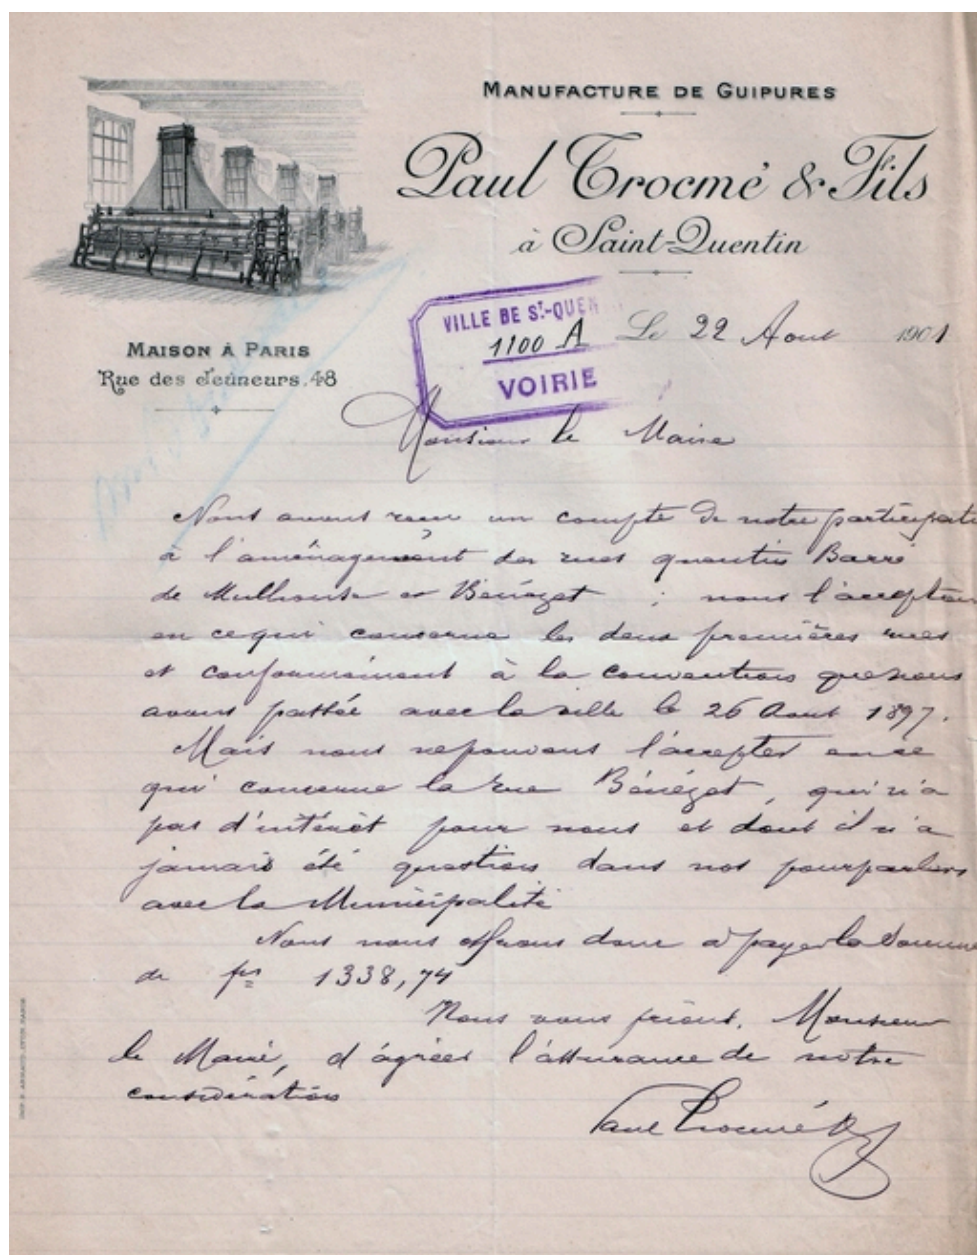 MANUFACTURE DE GUIPURES
Paul Trocmé & Fils
à Saint-Quentin
MAISON À PARIS
Rue des Jeûneurs, 48
VILLE DE St-QUEN
1100 A
VOIRIE
Le 22 Aout 1901
Monsieur le Maire
Nous avons reçu un compte de notre participat
à l'aménagement des rues quentin Barré
de Mulhouse et Bénézet ; nous l'acceptons
en ce qui concerne les deux premières rues
et conformément à la convention que nous
avons passée avec la ville le 26 Aout 1897.
Mais nous ne pouvons l'accepter en ce
qui concerne la rue Bénézet, qui n'a
pas d'intérêt pour nous et dont il n'a
jamais été question dans nos pourparlers
avec la Municipalité
Nous nous offrons donc à payer la somme
de frs 1338,74
Nous vous prions, Monsieur
le Maire, d'agréer l'assurance de notre
considération
Paul Trocmé